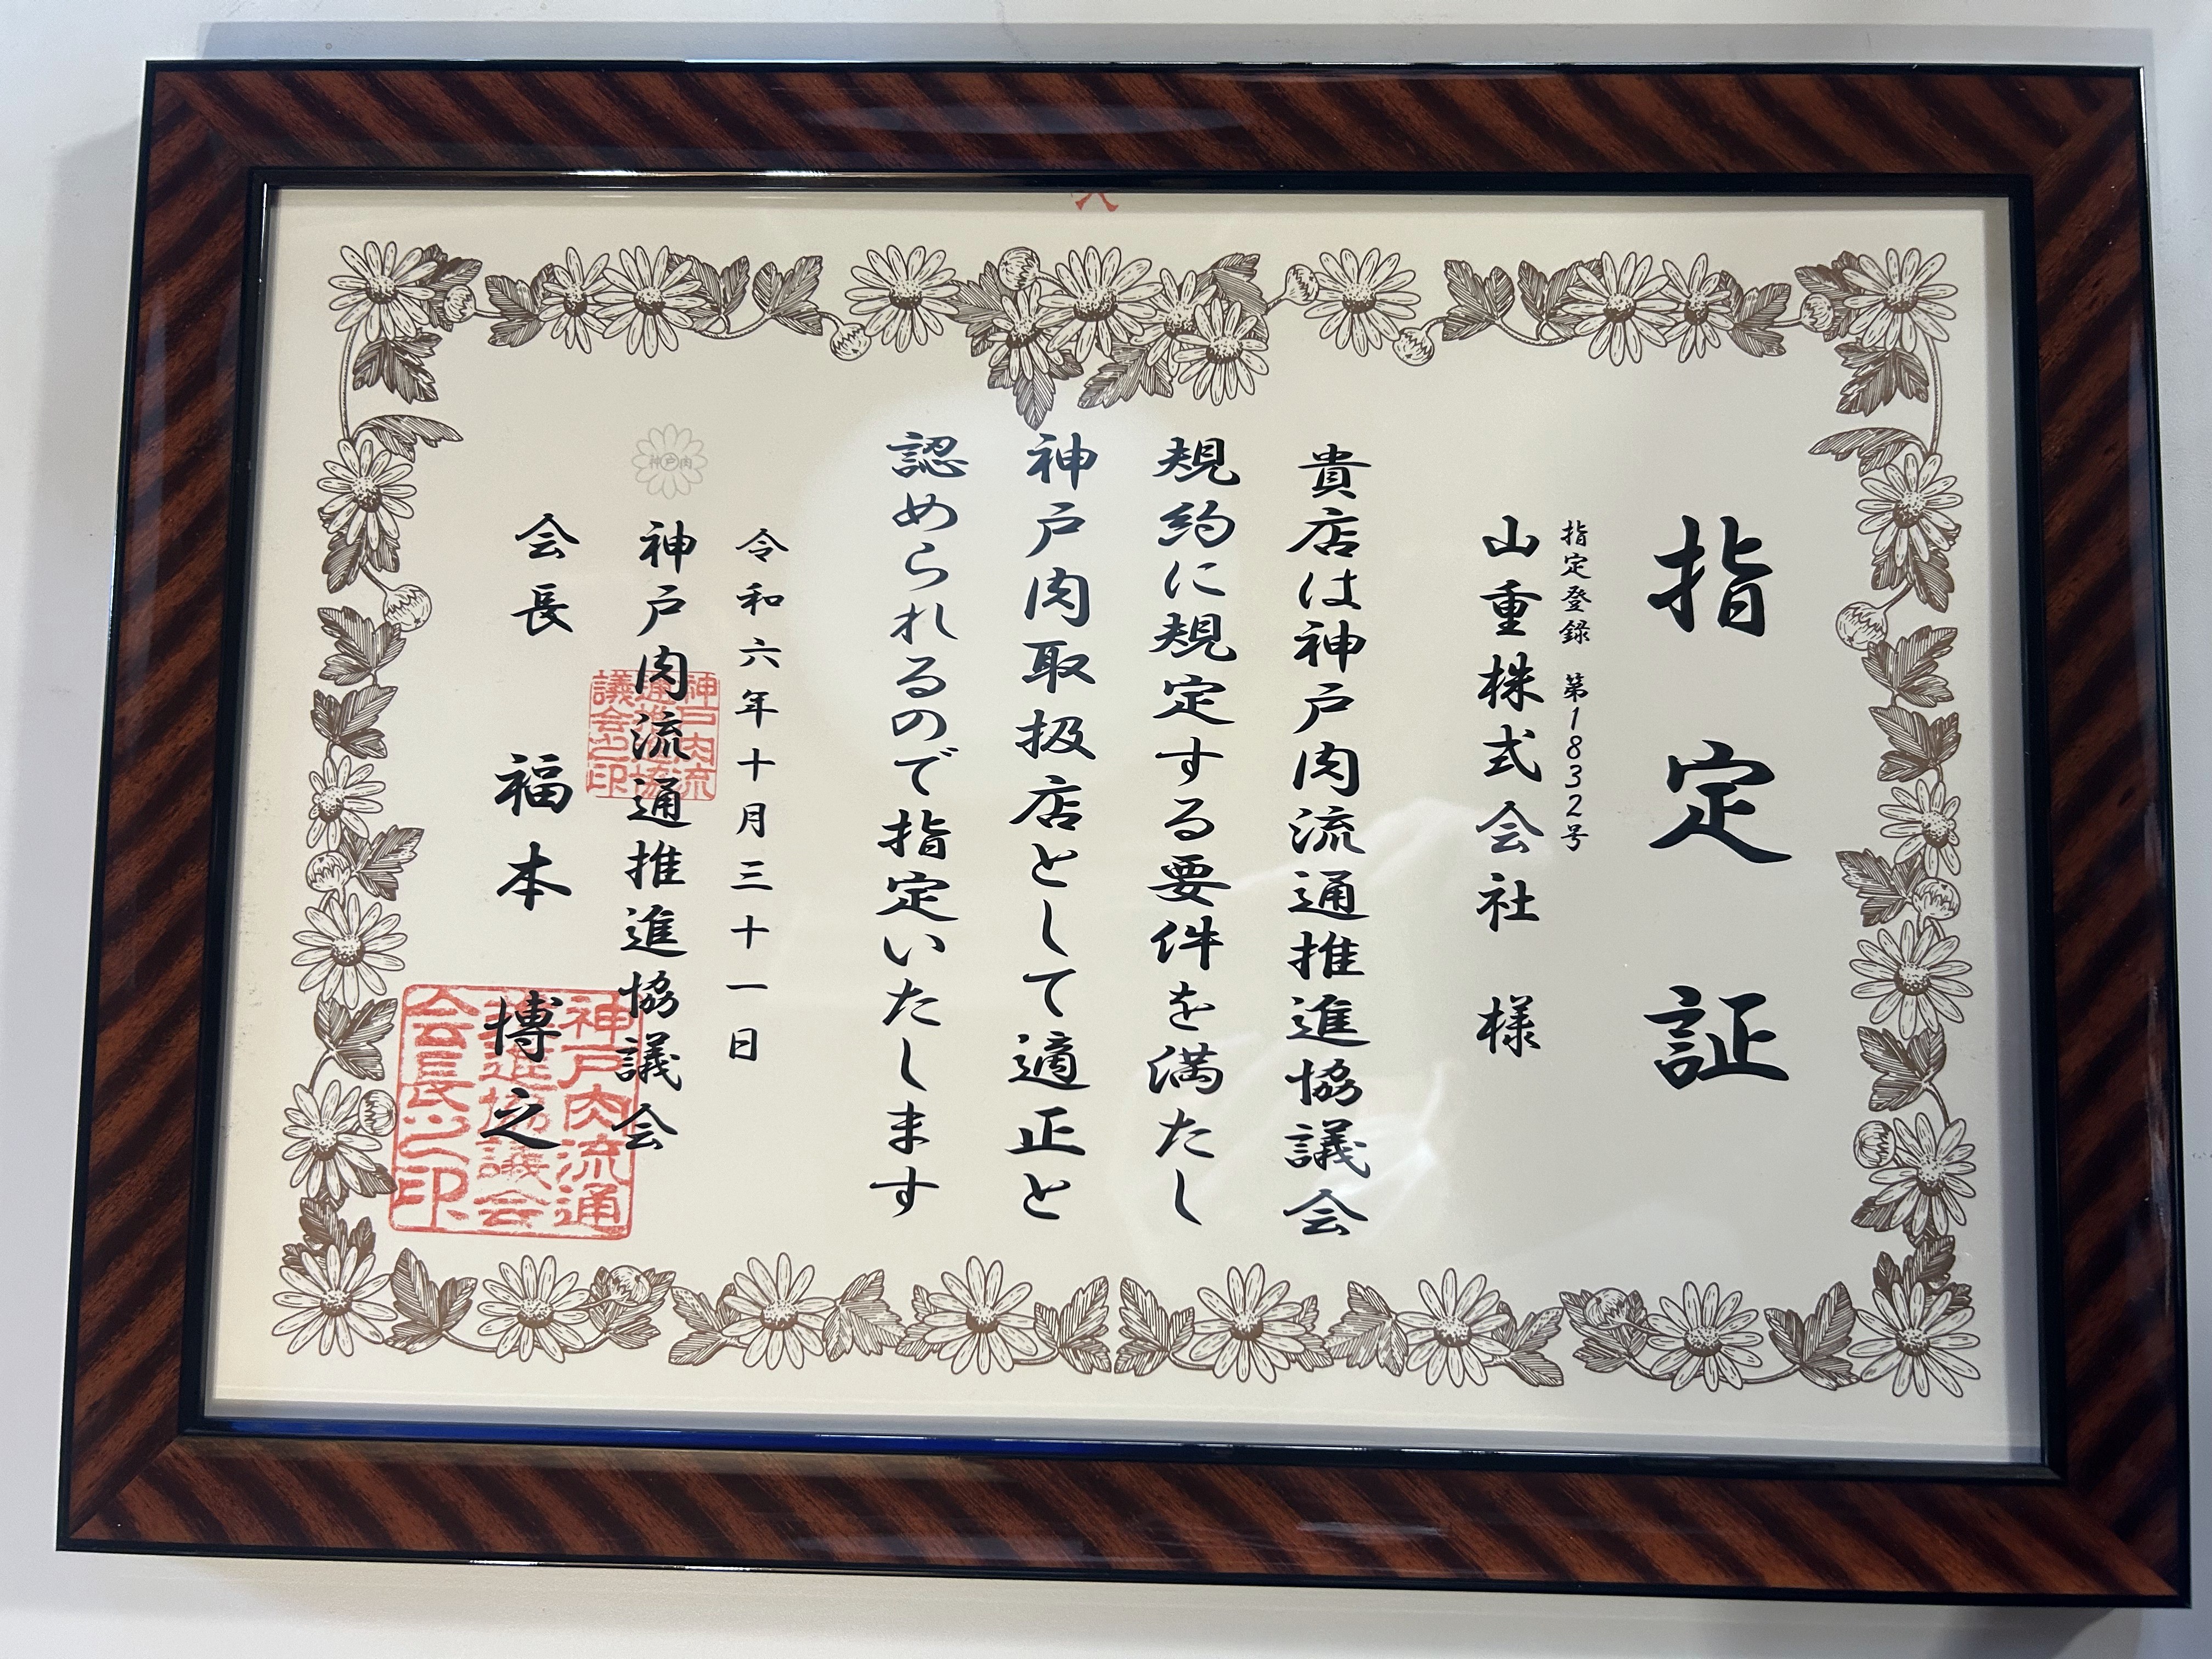 指定証
指定登録 第1832号
山重株式会社 様
貴店は神戸肉流通推進協議会
規約に規定する要件を満たし
神戸肉取扱店として適正と
認められるので指定いたします
令和六年十月三十一日
神戸肉
神戸肉流通推進協議会
神戸肉流通推進協議会之印
会長 福本 博之
神戸肉流通推進協議会会長之印